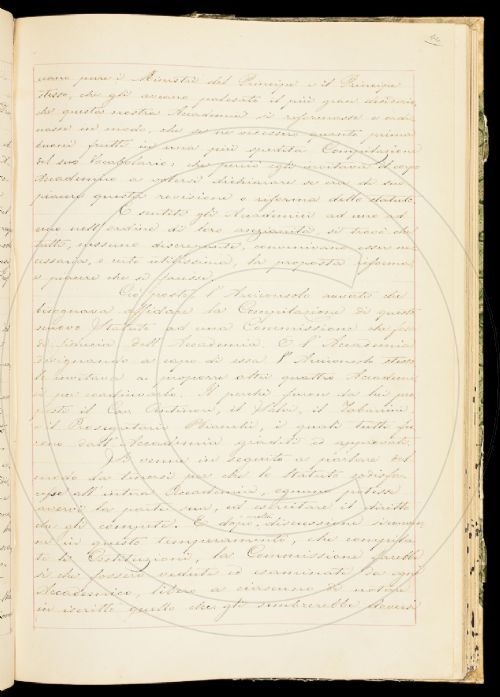 vano pure i Ministri del Principe e il Principe
stesso, che gli aveano palesato il più gran desiderio,
che questa nostra Accademia si riformasse e ordi
nasse in modo, che se ne vedessero quanto prima
buoni frutti in una più spedita Compilazione
del suo Vocabolario; che perciò egli invitava il corpo
Accademico a volersi dichiarare se era di suo
piacere questa revisione e riforma dello statuto.
E sentiti gli Accademici ad uno ad
uno nell'ordine di loro anzianità si trovò che
tutti, nessuno discrepante, convenivano esser ne
cessaria, e certo utilissima, la proposta riforma,
e piacere che si facesse.
Ciò posto l'Arciconsolo avvertì che
bisognava affidare la Compilazione di questo
nuovo Statuto ad una Commissione che fosse
di fiducia dell'Accademia. E l'Accademia
designando a capo di essa l'Arciconsolo stesso
lo invitava a proporre altri quattro Accademi
ci per coadiuvarlo. Il perchè furon da lui pro
posti il Cav. Antinori, il Valeri, il Tabarrini
e il Prosegretario Bianchi, i quali tutti fu
rono dall'Accademia graditi ed approvati.
Si venne in seguito a parlare del
modo da tenersi per che lo Statuto sodisfa
cesse all'intera Accademia, e ognuno potesse
averci la parte sua, ed esercitare il diritto
che gli compete. E dopo molta discussione si ven
ne in questo temperamento, che compila
te le Costituzioni, la Commissione farebbe
sì che fossero vedute ed esaminate da ogni
Accademico, libero a ciascuno di notare
in iscritto quello che gli sembrerebbe doversi